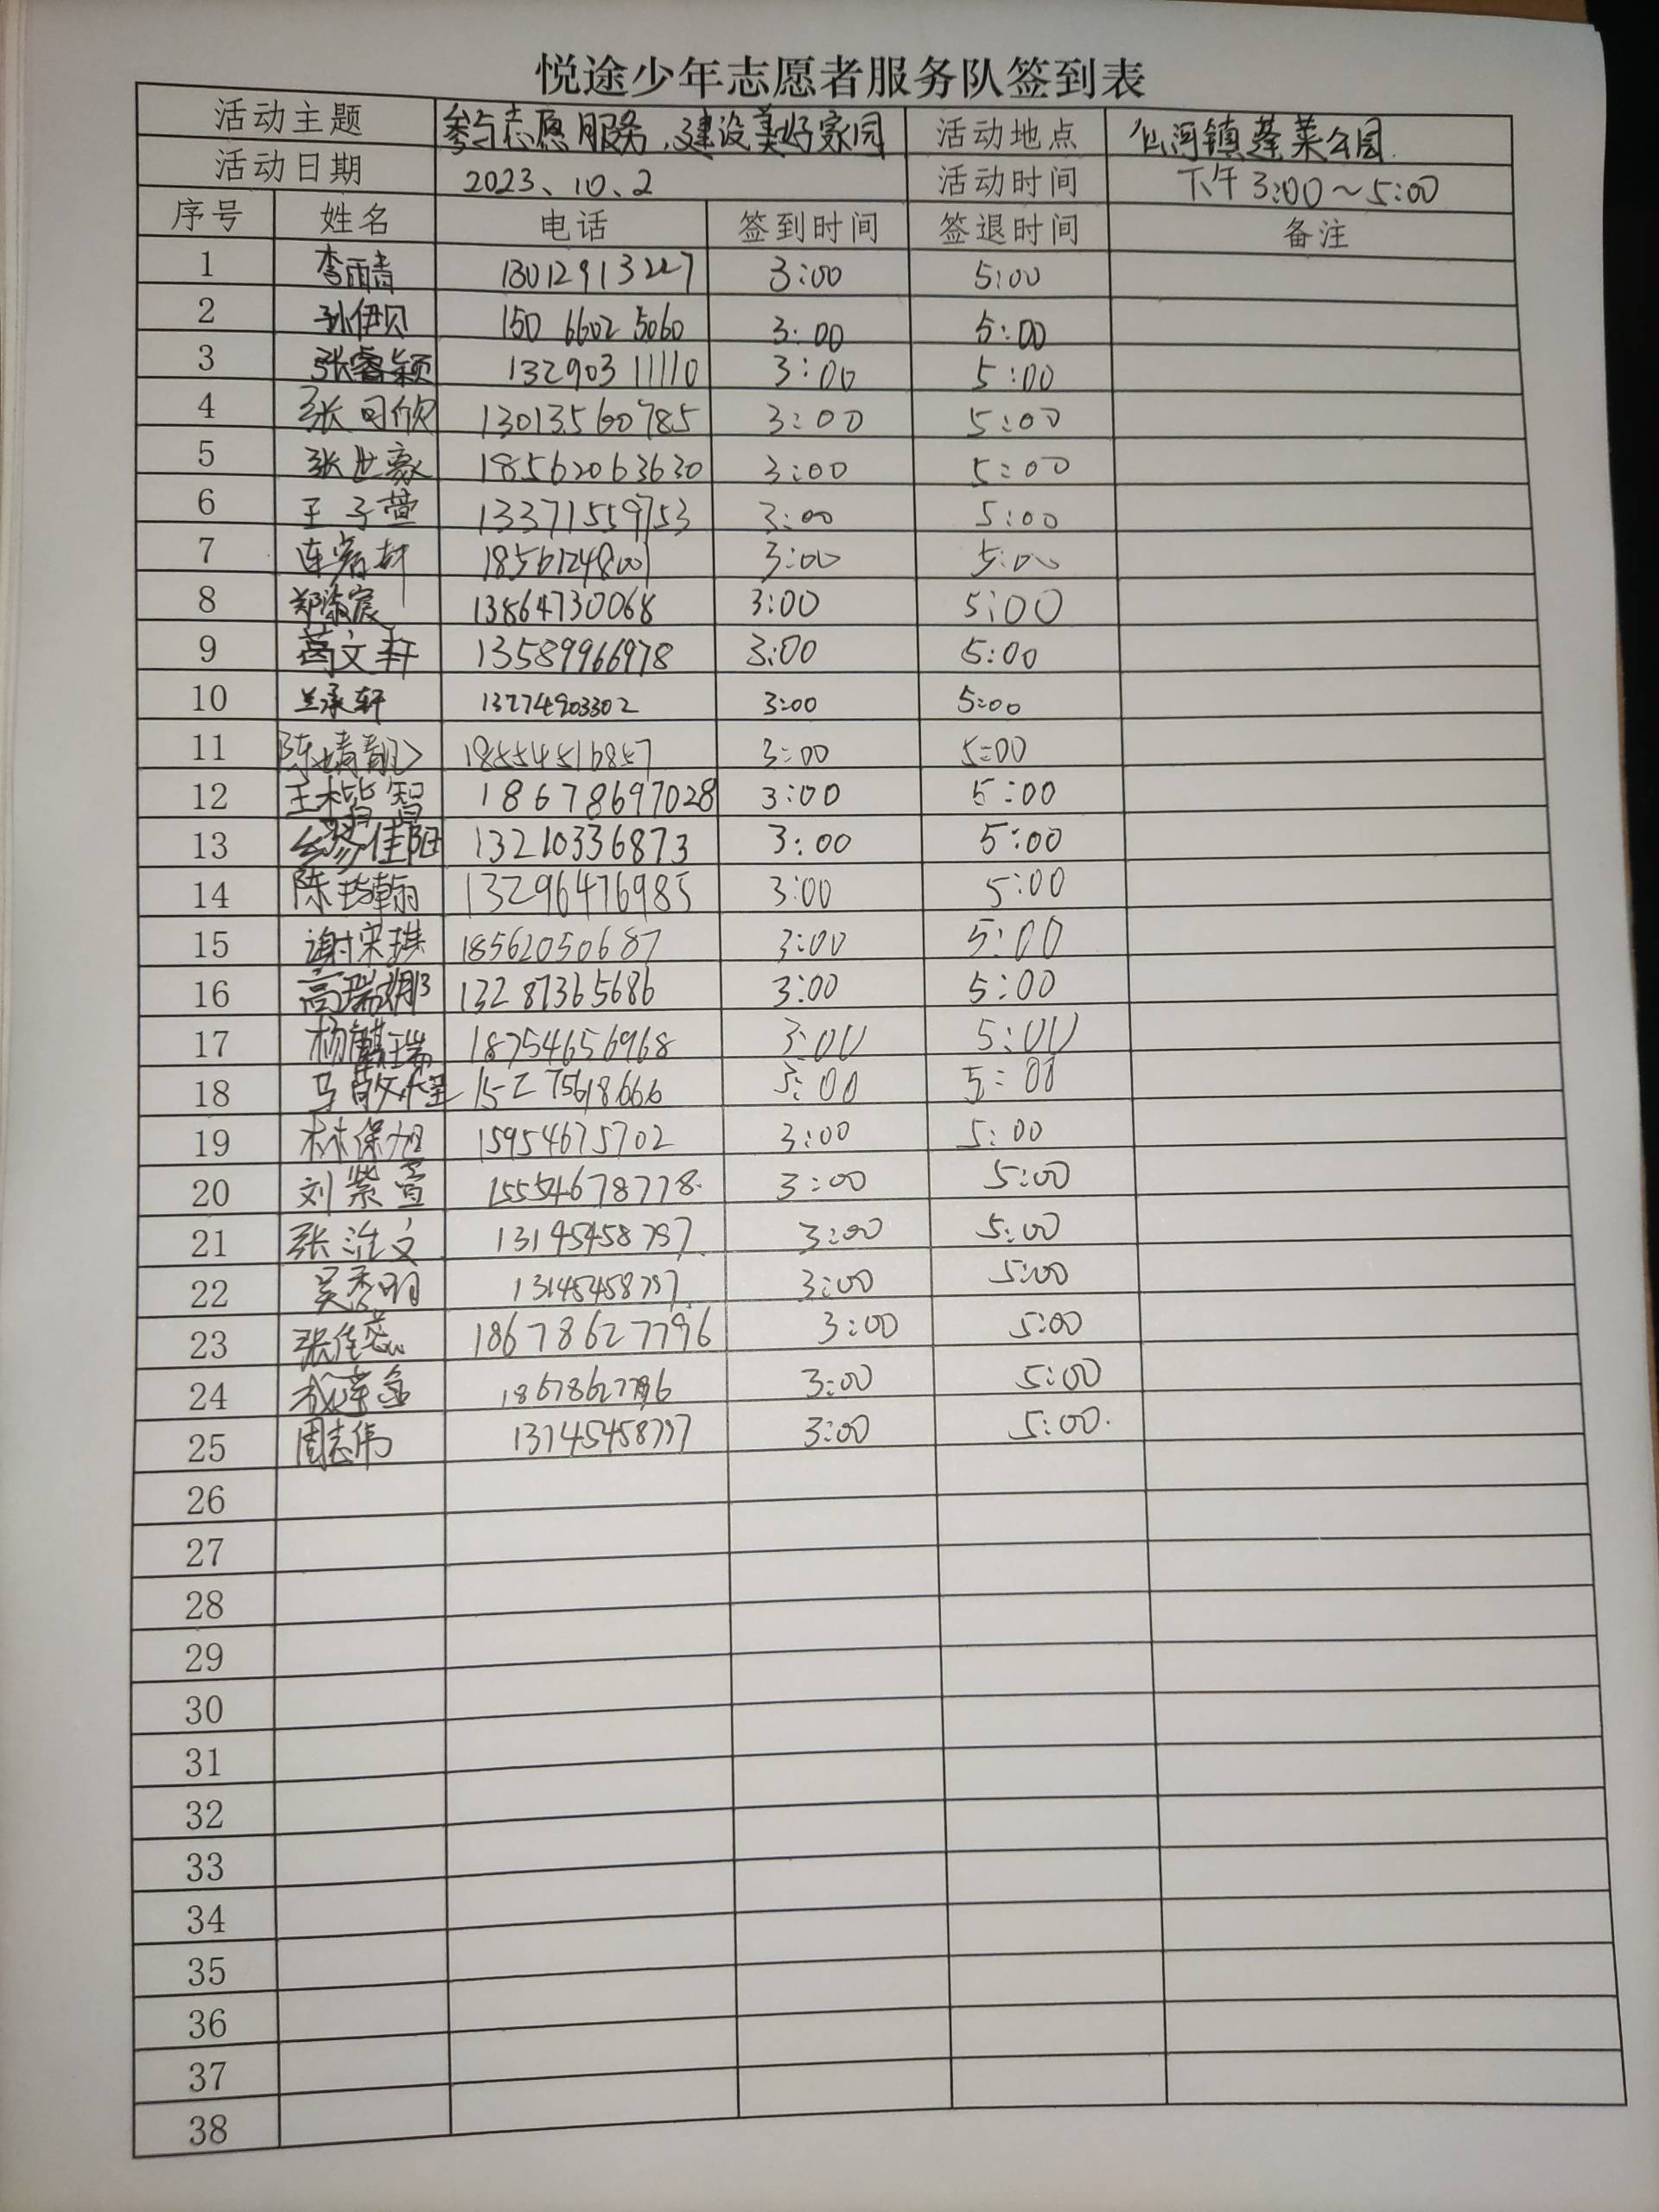 悦途少年志愿者服务队签到表
活动主题 参与志愿服务、建设美好家园 活动地点 仙河镇蓬莱公园
活动日期 2023、10、2 活动时间 下午3:00～5:00
序号 姓名 电话 签到时间 签退时间 备注
1 李雨青 13012913227 3:00 5:00
2 孙伊贝 150 6602 5060 3:00 5:00
3 张睿颖 132903 11110 3:00 5:00
4 张可欣 13013560785 3:00 5:00
5 张世豪 18562063630 3:00 5:00
6 王子萱 13371559753 3:00 5:00
7 连宥轩 18561248001 3:00 5:00
8 郑宸 13864730068 3:00 5:00
9 葛文轩 13589966978 3:00 5:00
10 兰承轩 13274903302 3:00 5:00
11 陈婧 18554516857 3:00 5:00
12 王楷智 18678697028 3:00 5:00
13 佳阳 13210336873 3:00 5:00
14 陈翰 13296476985 3:00 5:00
15 谢宋琪 18562050687 3:00 5:00
16 高瑞翔 13287365686 3:00 5:00
17 杨麒瑞 18754656968 3:00 5:00
18 马 15275618666 3:00 5:00
19 林保旭 15954675702 3:00 5:00
20 刘紫萱 15554678778. 3:00 5:00
21 张淮文 13145458797 3:00 5:00
22 吴秀明 13145458797 3:00 5:00
23 张佳蕊 18678627796 3:00 5:00
24 18678627796 3:00 5:00
25 周志伟 13145458797 3:00 5:00.
26
27
28
29
30
31
32
33
34
35
36
37
38